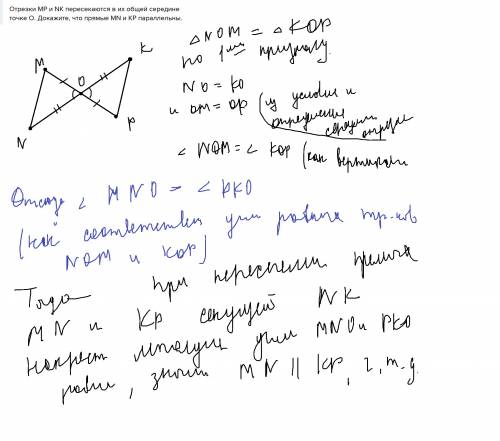 Отрезки MP и NK пересекаются в их общей середине
точке O. Докажите, что прямые MN и KP параллельны.
M
K
O
N
P
△ NOM = △ KOP
по 1 признаку
NO = KO
и OM = OP (из условия и
определения
середины
отрезка
∠ NOM = ∠ KOP (как вертикальн
Отсюда ∠ MNO = ∠ PKO
(как соответствен углы равных тр-ков
NOM и KOP)
Тогда при пересечении прямых
MN и KP секущей NK
накрест лежащие углы MNO и PKO
равны, значит MN || KP, ч.т.д.